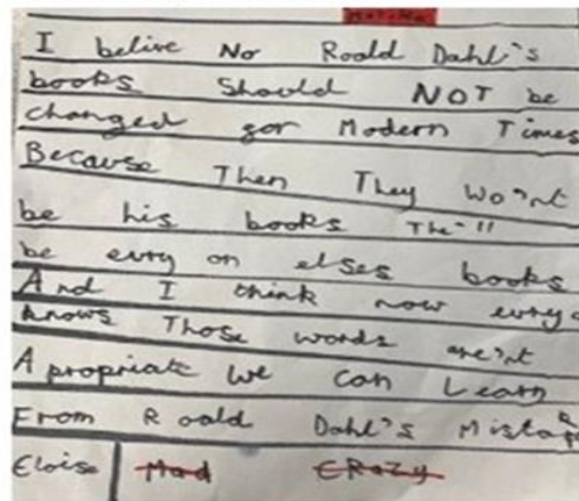 I belive No Roald Dahl's
books Should NOT be
changed gor Modern Times
Because Then They Wo'nt
be his books The'll
be evry on elses books
And I think now evry
knows Those words are'nt
Apropriate We Can Learn
From Roald Dahl's
Eloise Mad CRazy